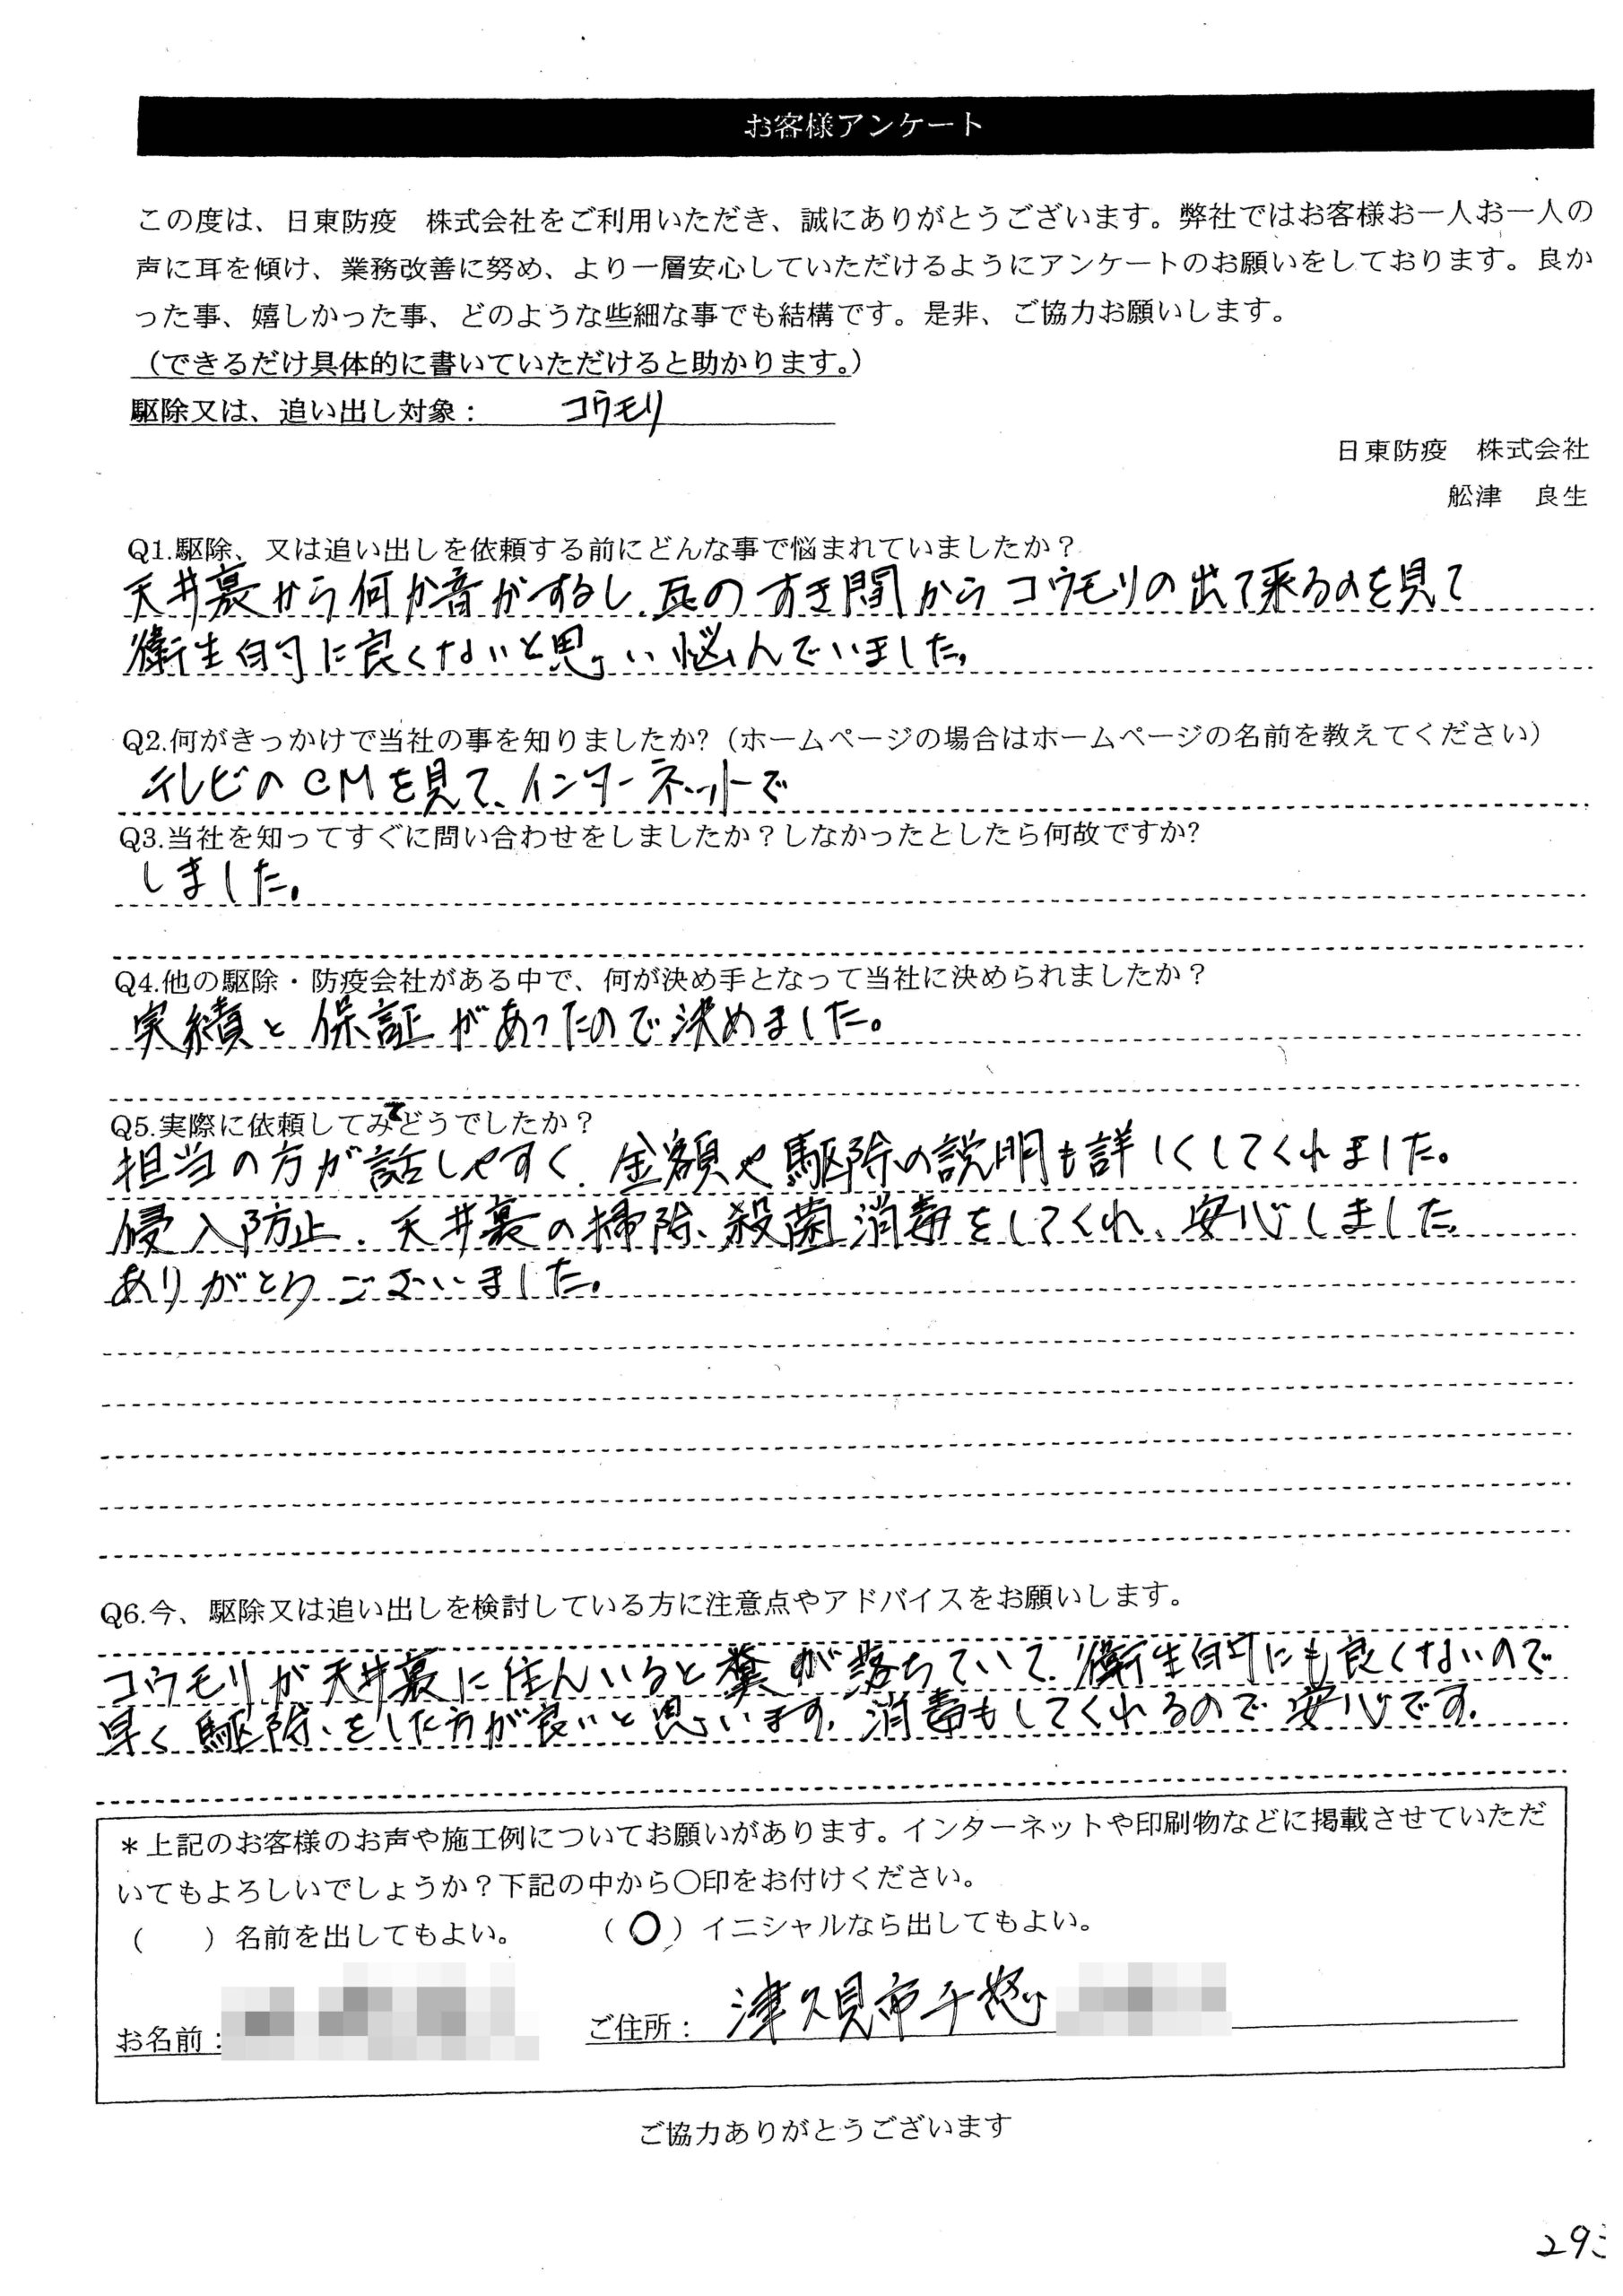 お客様アンケート
この度は、日東防疫　株式会社をご利用いただき、誠にありがとうございます。弊社ではお客様お一人お一人の
声に耳を傾け、業務改善に努め、より一層安心していただけるようにアンケートのお願いをしております。良か
った事、嬉しかった事、どのような些細な事でも結構です。是非、ご協力お願いします。
（できるだけ具体的に書いていただけると助かります。）
駆除又は、追い出し対象：　コウモリ
日東防疫　株式会社
舩津　良生
Q1.駆除、又は追い出しを依頼する前にどんな事で悩まれていましたか？
天井裏から何か音がするし、瓦のすき間からコウモリの出て来るのを見て
衛生的に良くないと思い悩んでいました。
Q2.何がきっかけで当社の事を知りましたか?（ホームページの場合はホームページの名前を教えてください）
テレビのCMを見て、インターネットで
Q3.当社を知ってすぐに問い合わせをしましたか？しなかったとしたら何故ですか?
しました。
Q4.他の駆除・防疫会社がある中で、何が決め手となって当社に決められましたか？
実績と保証があったので決めました。
Q5.実際に依頼してみてどうでしたか？
担当の方が話しやすく、金額や駆除の説明も詳しくしてくれました。
侵入防止、天井裏の掃除、殺菌消毒をしてくれ、安心しました。
ありがとうございました。
Q6.今、駆除又は追い出しを検討している方に注意点やアドバイスをお願いします。
コウモリが天井裏に住んいると糞が落ちていて、衛生的にも良くないので
早く駆除をした方が良いと思います。消毒もしてくれるので安心です。
＊上記のお客様のお声や施工例についてお願いがあります。インターネットや印刷物などに掲載させていただ
いてもよろしいでしょうか？下記の中から〇印をお付けください。
（　　）名前を出してもよい。　（〇）イニシャルなら出してもよい。
お名前：　ご住所：　津久見市千怒
ご協力ありがとうございます
29